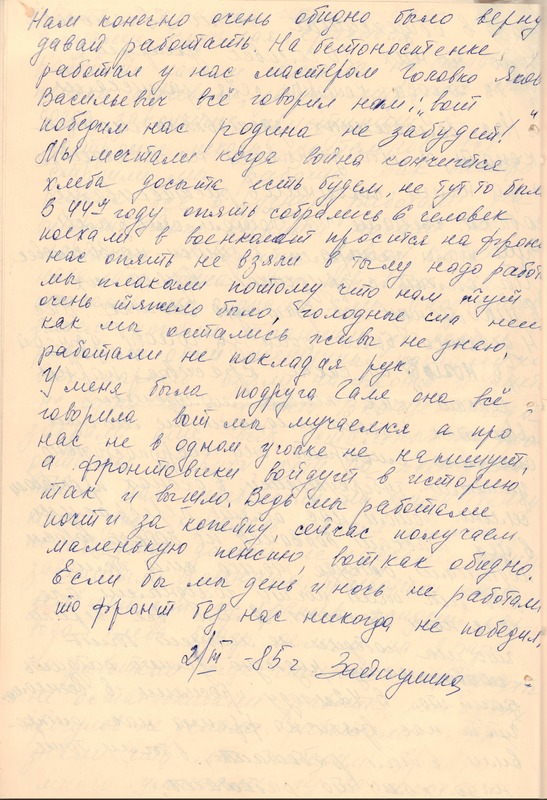 Нам конечно очень обидно было верну
давай работать. На бетоностенке,
работал у нас мастером Головко Яков
Васильевич всё говорил нам; "вот
победим нас родина не забудет!"
Мы мечтали когда война кончится
хлеба досыта есть будем, не тут то был
В 44ом году опять собрались 6 человек
поехали в военкомат просится на фрон
нас опять не взяли в тылу надо работ
мы плакали потому что нам тут
очень тяжело было, голодные сил нет
как мы остались живы не знаю,
работали не покладая рук.
У меня была подруга Галя она всё
говорила вот мы мучаемся а про
нас не в одном уголке не напишут,
а фронтовики войдут в историю
так и вышло. Ведь мы работали
почти за копейку, сейчас получаем
маленькую пенсию, вот как обидно.
Если бы мы день и ночь не работали
то фронт без нас никогда не победил.
2/III -85 г